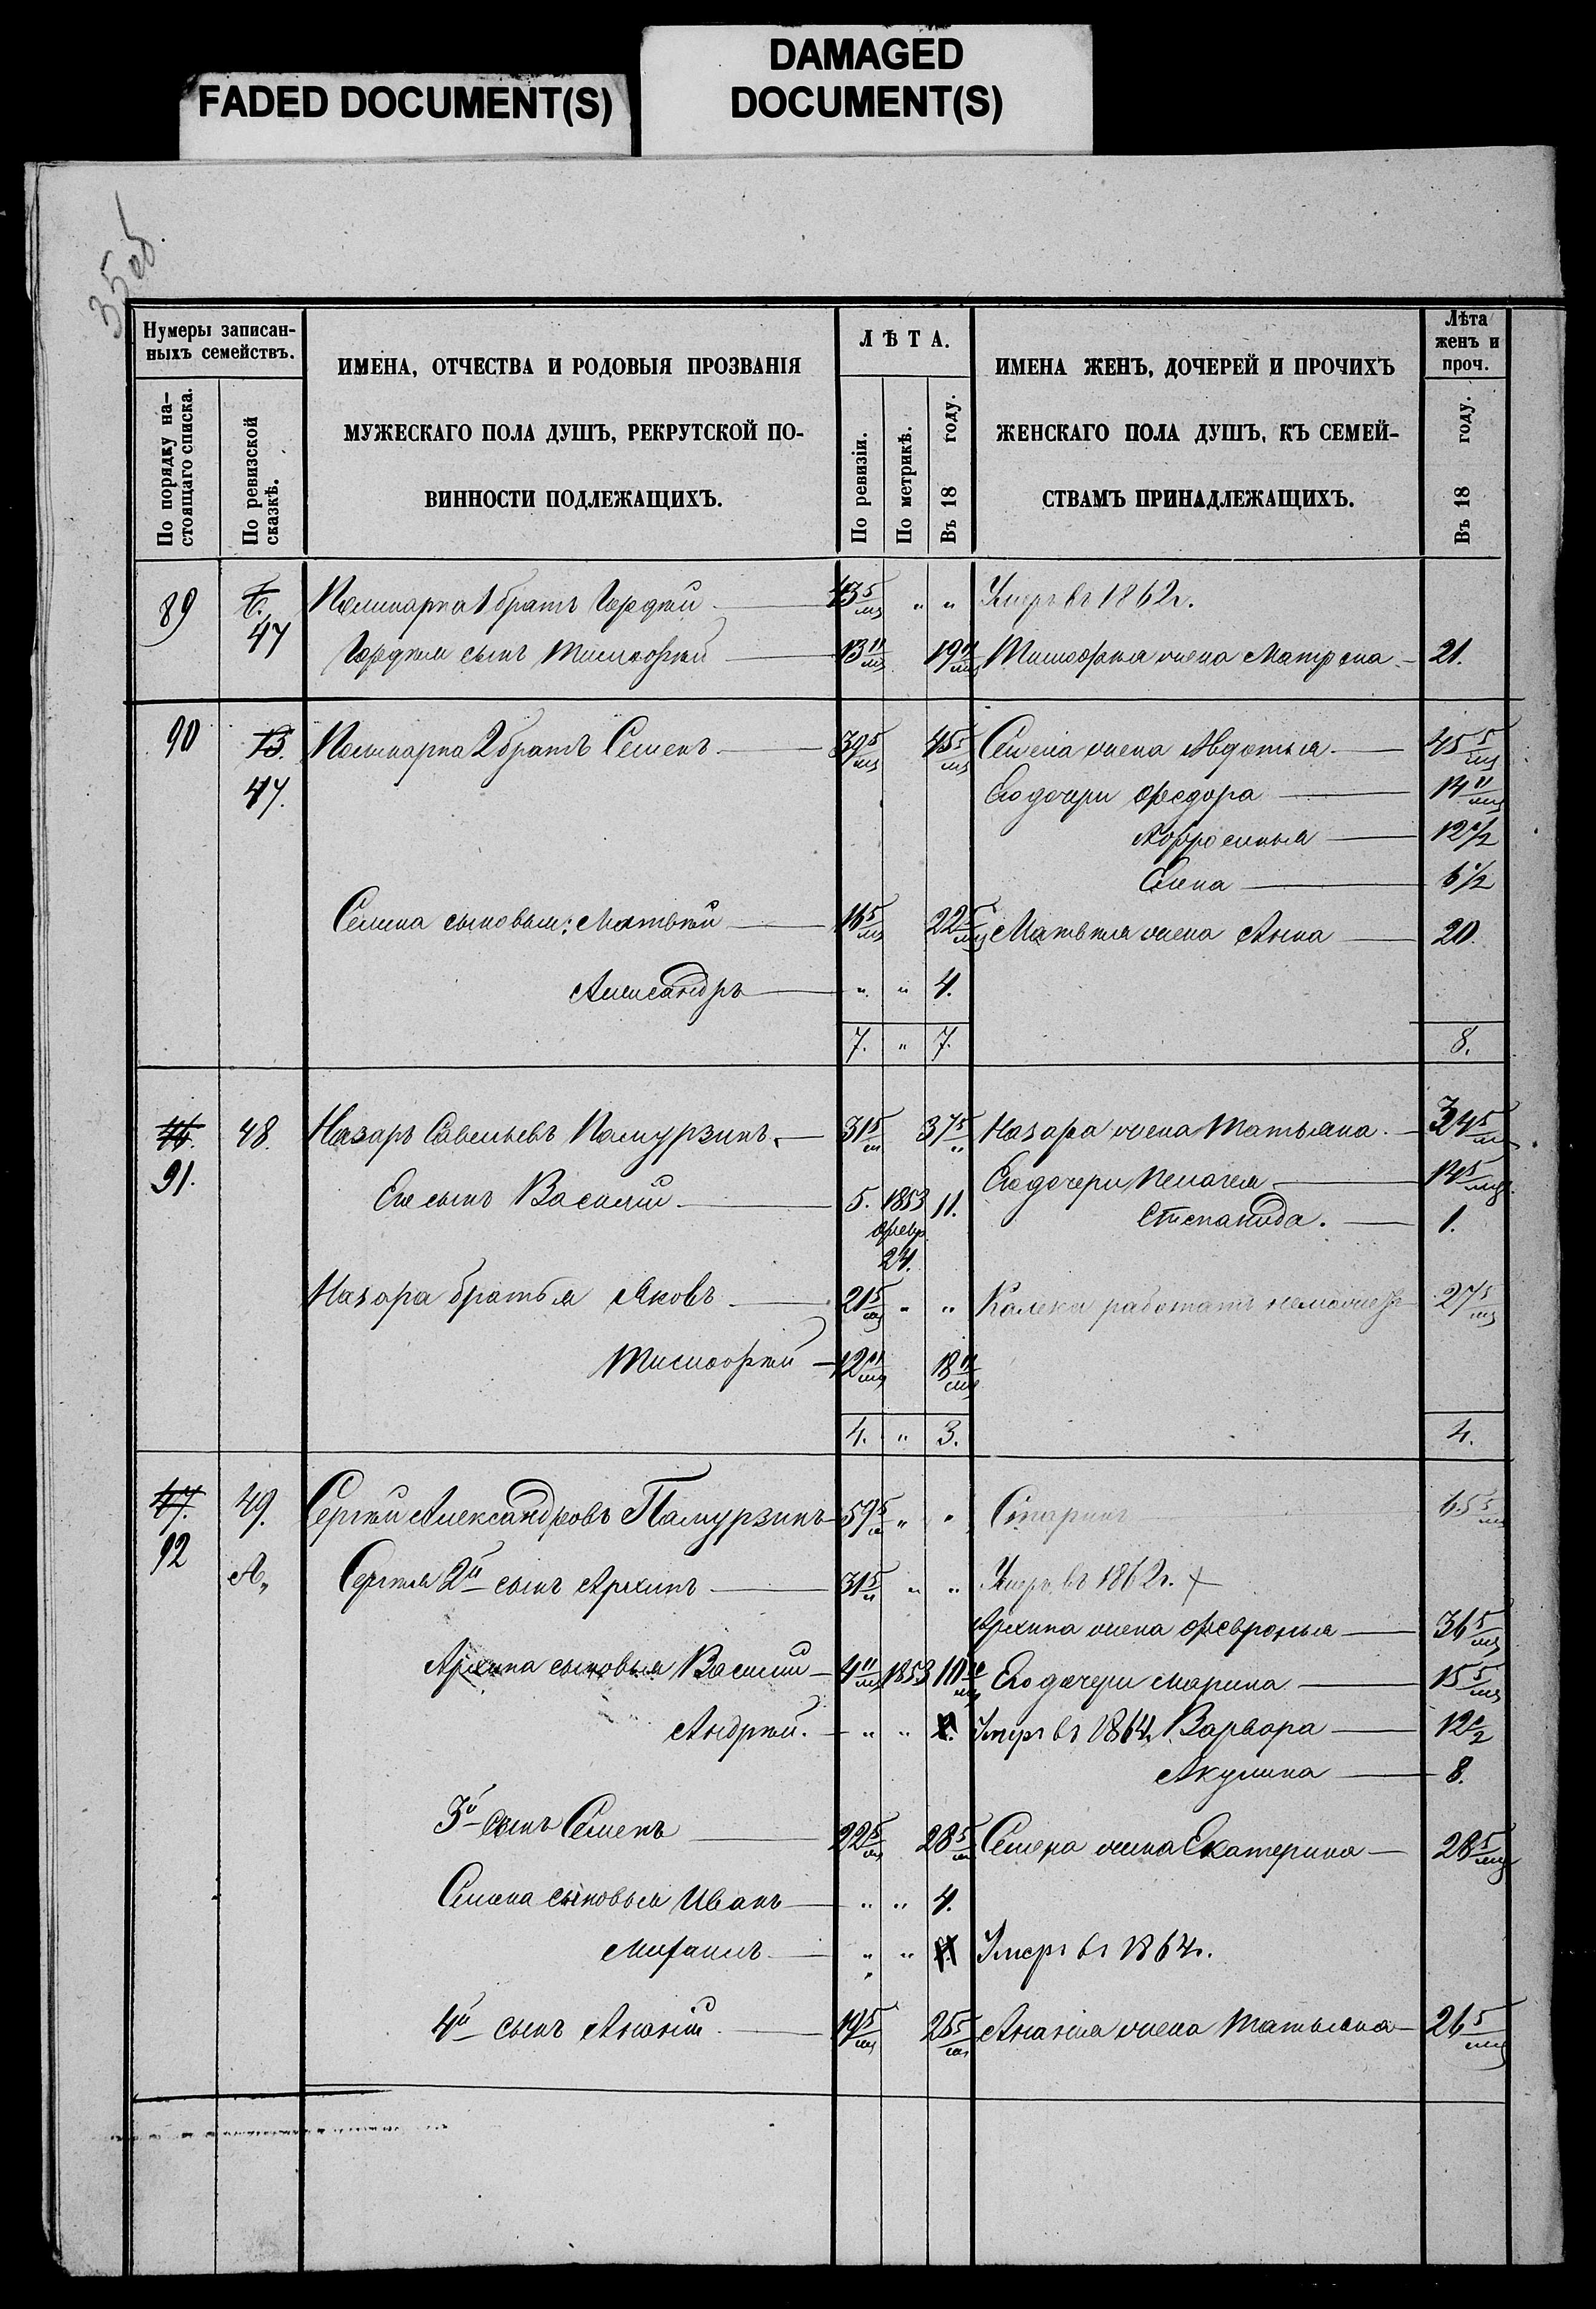 FADED DOCUMENT(S)
DAMAGED
DOCUMENT(S)
35 об.
Нумеры записан-
ныхъ семействъ.
По порядку на-
стоящаго списка.
По ревизской
сказкѣ.
ИМЕНА, ОТЧЕСТВА И РОДОВЫЯ ПРОЗВАНІЯ
МУЖЕСКАГО ПОЛА ДУШЪ, РЕКРУТСКОЙ ПО-
ВИННОСТИ ПОДЛЕЖАЩИХЪ.
ЛѢТА.
По ревизіи.
По метрикѣ.
Въ 18 году.
ИМЕНА ЖЕНЪ, ДОЧЕРЕЙ И ПРОЧИХЪ
ЖЕНСКАГО ПОЛА ДУШЪ, КЪ СЕМЕЙ-
СТВАМЪ ПРИНАДЛЕЖАЩИХЪ.
Лѣта
женъ и
проч.
Въ 18 году.
89 Поликарпа 1 братъ Гордѣй 43 5/мц " " Умеръ въ 1862 г.
47 Гордѣя сынъ Тимофѣй 13 11/мц 19 11/мц Тимофѣя жена Матрена 21.
90 Поликарпа 2 братъ Семенъ 39 5/мц 45 5/мц Семена жена Авдотья 45 5/мц
47. Его дочери Федора 14 11/мц
12 1/2
Елена 6 1/2
Семена сыновья: Матвѣй 16 5/мц 22 5/мц Матвѣя жена Анна 20.
Александръ " " 4.
7. " 7. 8.
46. 48. Назаръ Савельевъ Памурзинъ 31 5/м 37 5/м Назара жена Татьяна 34 5/м
91. Его дочери Пелагея 14 5/мц
Его сынъ Василій 5. 1853 11. Степанида. 1.
февр.
24.
Назара братья Яковъ 21 5/мц " " Калека работать неможетъ 27 5/мц
Тимофѣй 12 11/мц 18 11/мц
4. " 3. 4.
47. 49. Сергѣй Александровъ Памурзинъ 59 5/м " " Старикъ 65 5/м
92 А, Сергѣя 2й сынъ Архипъ 31 5/м " " Умеръ въ 1862 г. +
Архипа жена Февронья 36 5/мц
Архипа сыновья Василій 4 11/мц 1853 10 Его дочери Марина 15 5/мц
Андрей. " " Умеръ въ 1864 г. Варвара 12 1/2
Акулина 8.
3й сынъ Семенъ 22 5/мц 28 5/м Семена жена Екатерина 28 5/мц
Семена сыновья Иванъ " " 4.
Михаилъ " " Умеръ въ 1864 г.
4й сынъ Ананій 19 5/мц 25 5/мц Ананія жена Татьяна 26 5/мц